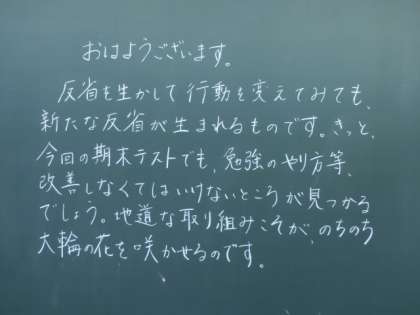 おはようございます。
反省を生かして行動を変えてみても、
新たな反省が生まれるものです。きっと、
今回の期末テストでも、勉強のやり方等、
改善しなくてはいけないところが見つかる
でしょう。地道な取り組みこそが、のちのち
大輪の花を咲かせるのです。